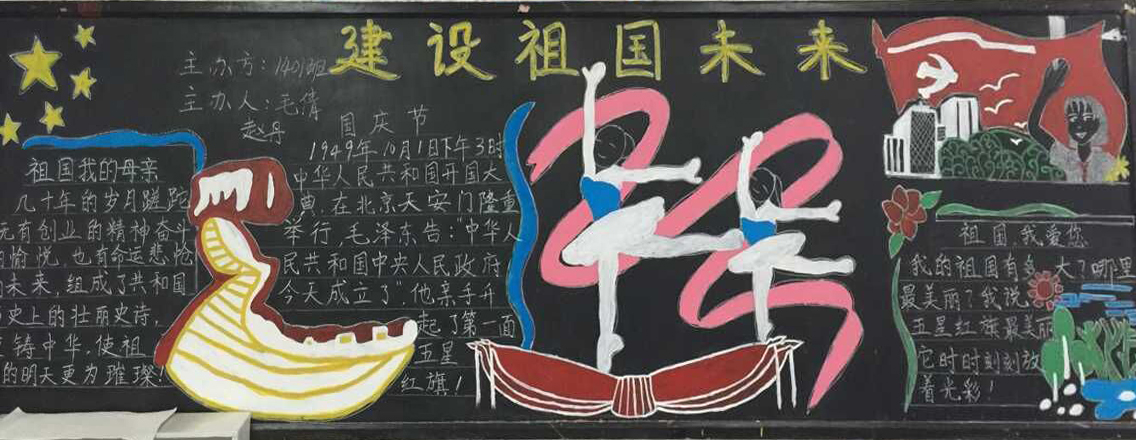 建设祖国未来
主办方：1401班
主办人：毛倩
赵丹
祖国我的母亲
几十年的岁月蹉跎
元有创业的精神奋斗
愉悦，也有命运悲怆
的未来，组成了共和国
史上的壮丽史诗，
铸中华，使祖
的明天更为璀璨！
国庆节
1949年10月1日下午3时
中华人民共和国开国大
典，在北京天安门隆重
举行，毛泽东告："中华人
民共和国中央人民政府
今天成立了"，他亲手升
起了第一面
五星
红旗！
祖国，我爱您
我的祖国有多大？哪里
最美丽？我说
五星红旗最美丽
它时时刻刻放
着光彩！